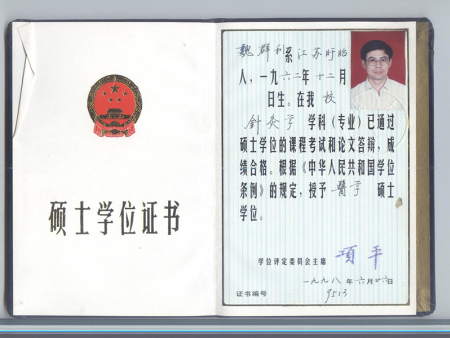 硕士学位证书
魏群利系江苏盱眙
人,一九六二年十二月
日生。在我 校
针灸学 学科(专业)已通过
硕士学位的课程考试和论文答辩,成
绩合格。根据《中华人民共和国学位
条例》的规定,授予 医学 硕士
学位。
学位评定委员会主席 项平
一九九八年六月廿六日
证书编号 9513